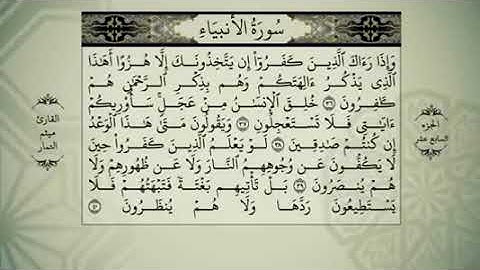 سُورَةُ الأَنبيَاءِ
وَإِذَا رَءَاكَ ٱلَّذِينَ كَفَرُوٓا۟ إِن يَتَّخِذُونَكَ إِلَّا هُزُوًا أَهَٰذَا
ٱلَّذِى يَذْكُرُ ءَالِهَتَكُمْ وَهُم بِذِكْرِ ٱلرَّحْمَٰنِ هُمْ
كَٰفِرُونَ ٣٦ خُلِقَ ٱلْإِنسَٰنُ مِنْ عَجَلٍ سَأُو۟رِيكُمْ
ءَايَٰتِى فَلَا تَسْتَعْجِلُونِ ٣٧ وَيَقُولُونَ مَتَىٰ هَٰذَا ٱلْوَعْدُ
إِن كُنتُمْ صَٰدِقِينَ ٣٨ لَوْ يَعْلَمُ ٱلَّذِينَ كَفَرُوا۟ حِينَ
لَا يَكُفُّونَ عَن وُجُوهِهِمُ ٱلنَّارَ وَلَا عَن ظُهُورِهِمْ وَلَا
هُمْ يُنصَرُونَ ٣٩ بَلْ تَأْتِيهِم بَغْتَةً فَتَبْهَتُهُمْ فَلَا
يَسْتَطِيعُونَ رَدَّهَا وَلَا هُمْ يُنظَرُونَ ٤٠
الجزء
السابع عشر
القارئ
ميثم
التمار